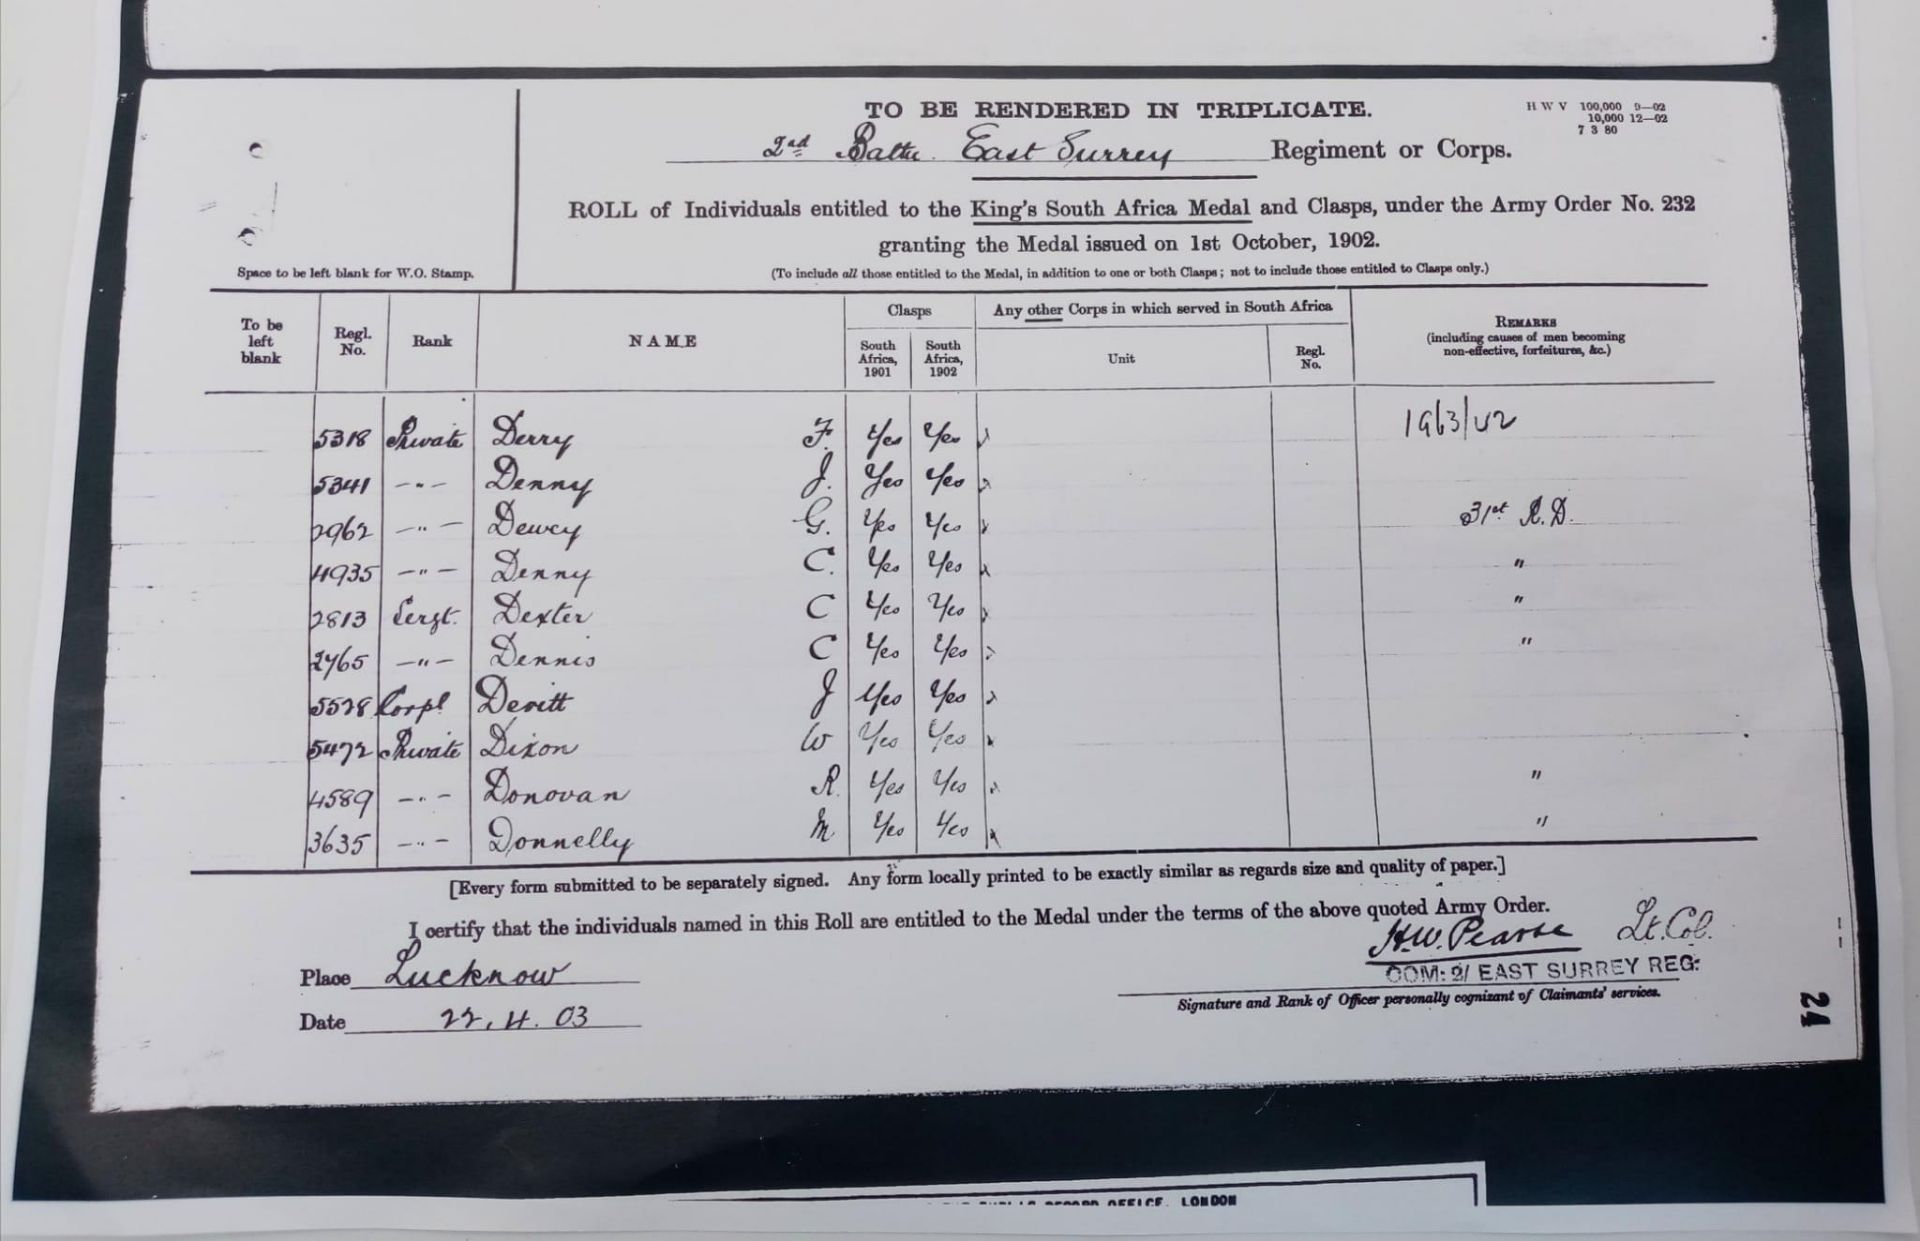 TO BE RENDERED IN TRIPLICATE.
H W V 100,000 9—02
10,000 12—02
7 3 80
2nd Battn. East Surrey Regiment or Corps.
ROLL of Individuals entitled to the King's South Africa Medal and Clasps, under the Army Order No. 232
granting the Medal issued on 1st October, 1902.
Space to be left blank for W.O. Stamp.
(To include all those entitled to the Medal, in addition to one or both Clasps; not to include those entitled to Clasps only.)
To be left blank
Regl. No.
Rank
NAME
Clasps
South Africa, 1901
South Africa, 1902
Any other Corps in which served in South Africa
Unit
Regl. No.
REMARKS
(including causes of men becoming
non-effective, forfeitures, &c.)
5318 Private Derry F. Yes Yes
5341 —"— Denny J. Yes Yes
2962 —"— Dewey G. Yes Yes 31st A.D.
4935 —"— Denny C. Yes Yes "
2813 Sergt. Dexter C Yes Yes "
2765 —"— Dennis C Yes Yes "
5528 Corpl Devitt J Yes Yes
5472 Private Dixon W Yes Yes
4589 —"— Donovan R. Yes Yes "
3635 —"— Donnelly M. Yes Yes "
[Every form submitted to be separately signed. Any form locally printed to be exactly similar as regards size and quality of paper.]
I certify that the individuals named in this Roll are entitled to the Medal under the terms of the above quoted Army Order.
H.W. Pearse Lt. Col.
Place Lucknow
COM: 2/ EAST SURREY REG:
Signature and Rank of Officer personally cognizant of Claimants' services.
Date 22.4.03
24
RECORD OFFICE, LONDON